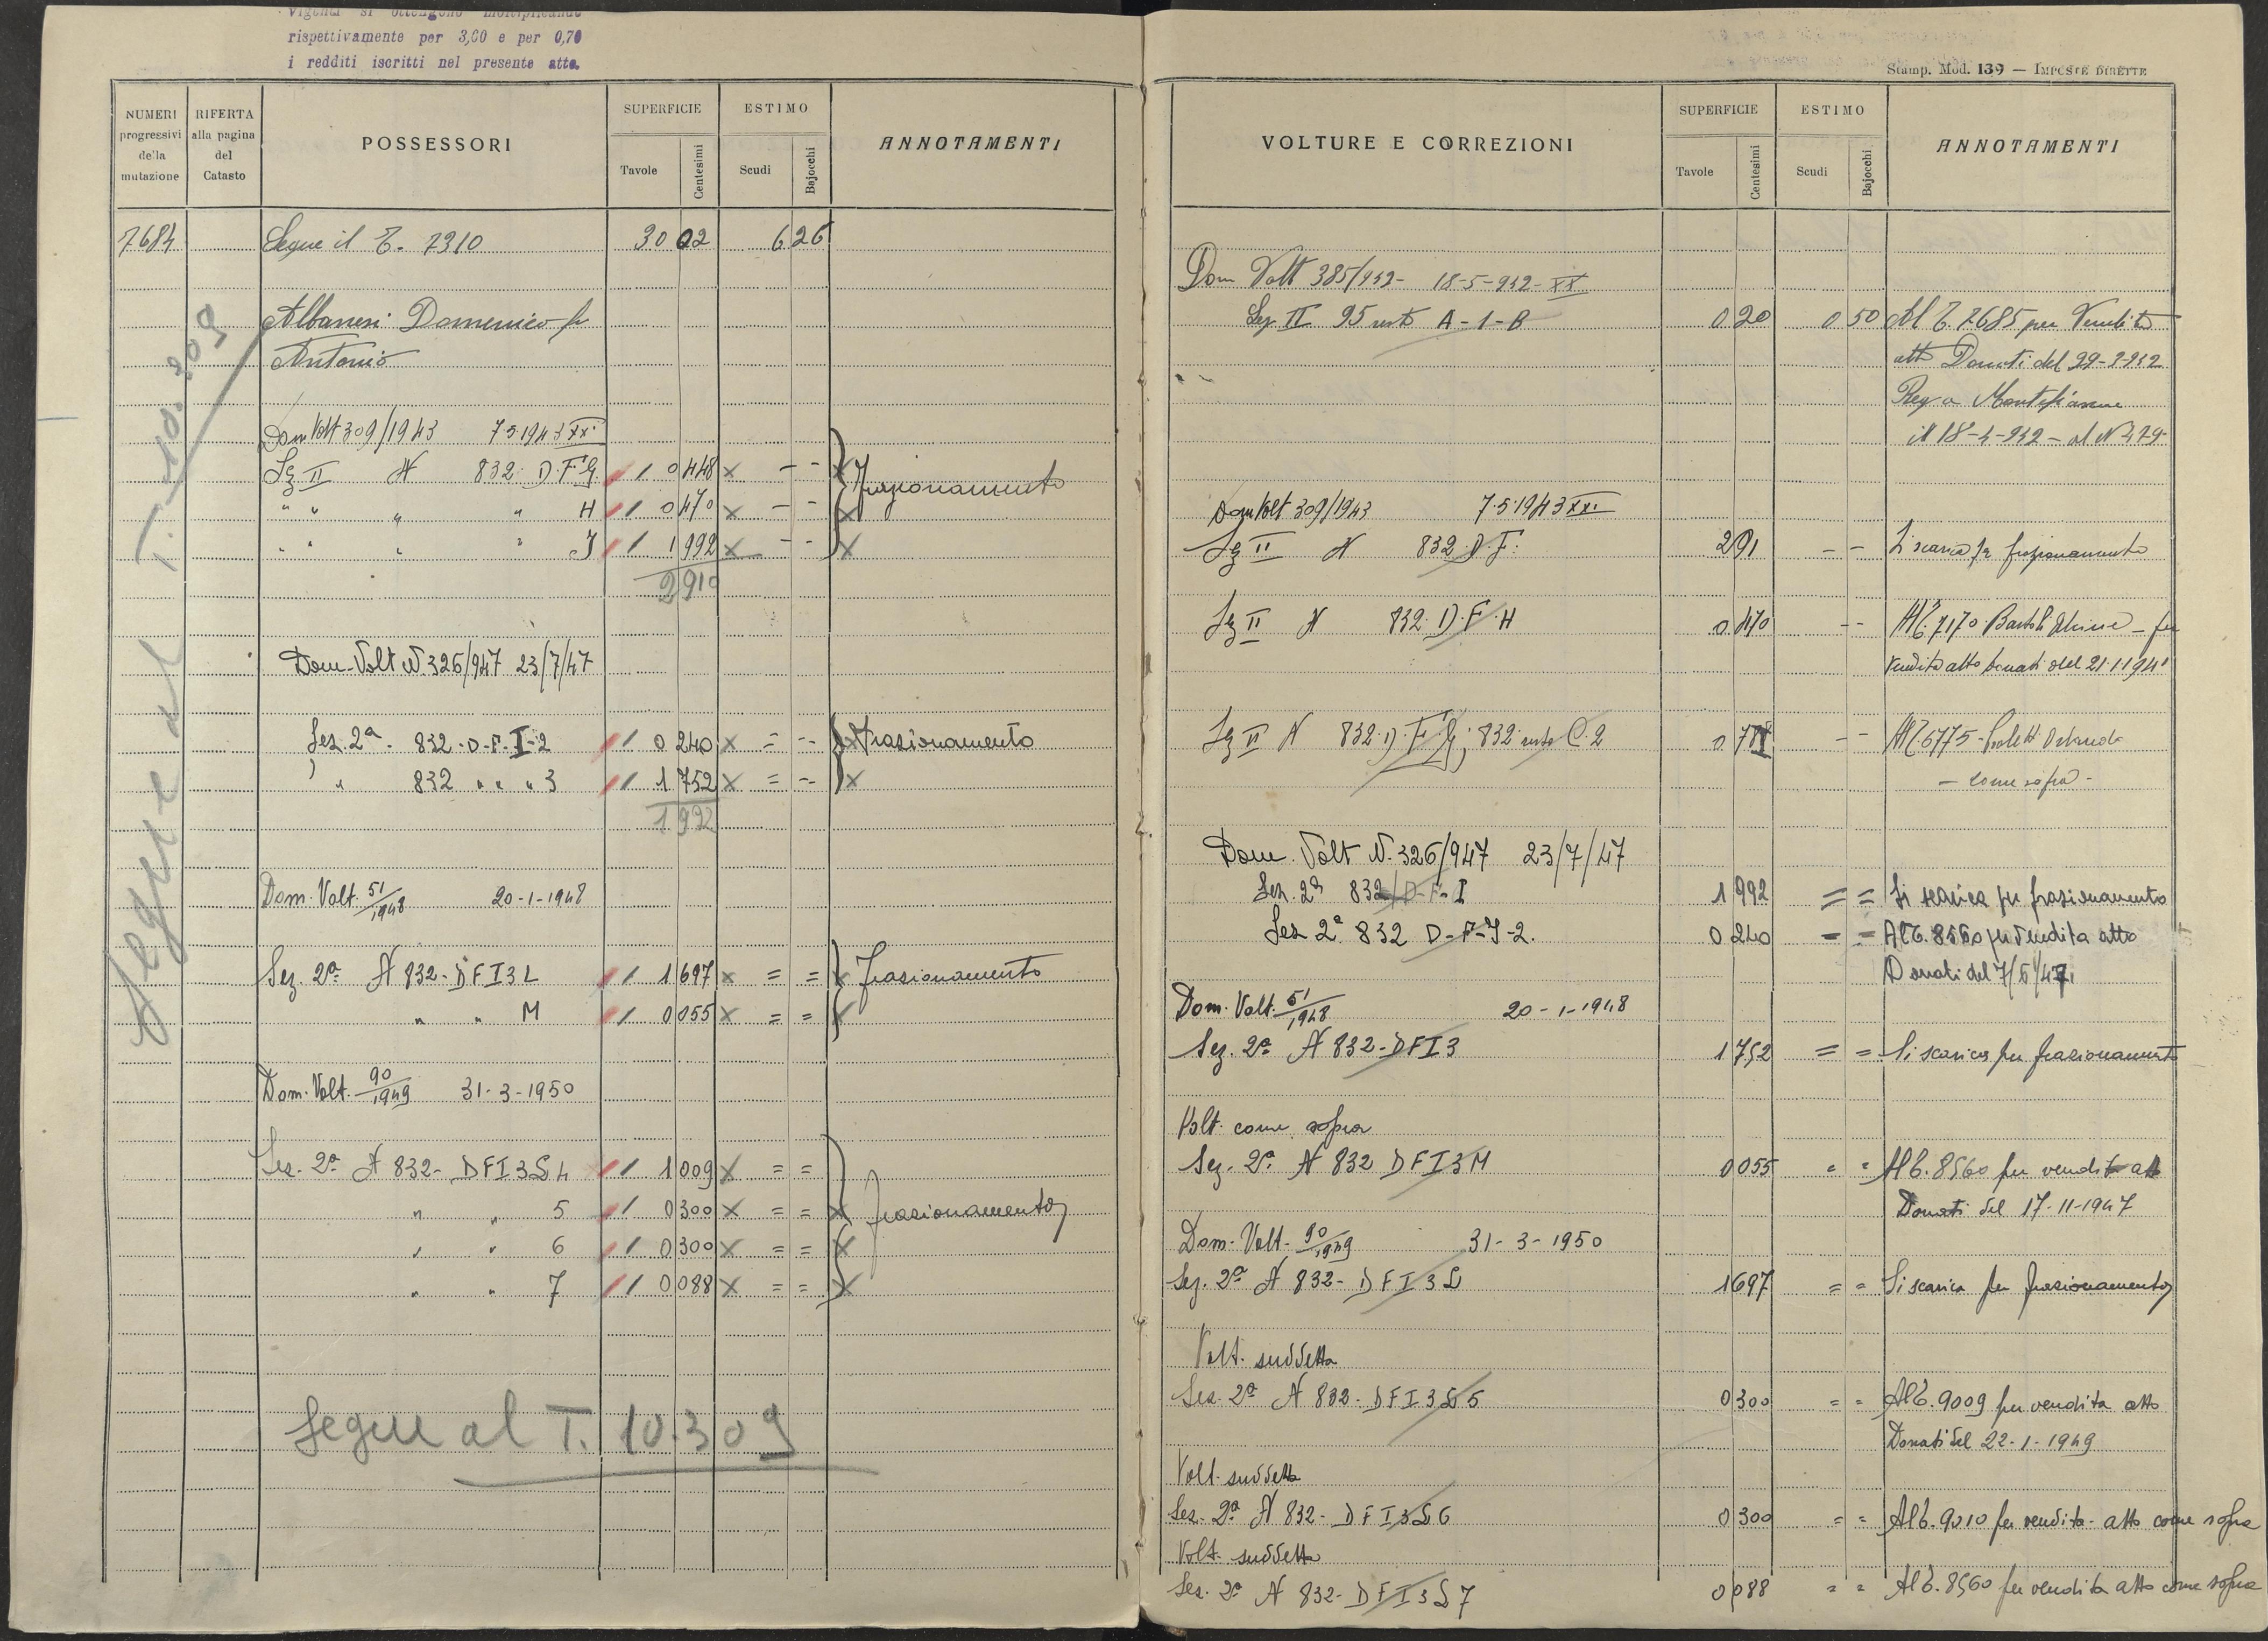 Vigenti si ottengono moltiplicando
rispettivamente per 3,00 e per 0,70
i redditi iscritti nel presente atto.
NUMERI progressivi della mutazione
RIFERTA alla pagina del Catasto
POSSESSORI
SUPERFICIE
Tavole
Centesimi
ESTIMO
Scudi
Bajocchi
ANNOTAMENTI
7684 Segue il T. 7310 30 02 6 26
Albanesi Domenico fu
Antonio
Segue al T. 10.309
Dom Volt 309/1943 7 5 1943 XXI
Sez II N 832 D.F.G. 0 448 x - - x Frazionamento
" " " " H 0 470 x - - x
" " " " I 1 992 x - - x
2 910
Dom-Volt N. 326/947 23/7/47
Sez. 2a - 832-D-F-I-2 0 240 x = -- x Frazionamento
" 832 " " " 3 1 752 x = -- x
1 992
Dom. Volt. 51/1948 20-1-1948
Sez. 2a N 832-DFI3L 1 697 x = = x frazionamento
" " M 0 055 x = = x
Dom. Volt. 90/1949 31-3-1950
Sez. 2a N 832- DFI3L4 1 009 x = =
" " 5 0 300 x = = x frazionamento
" " 6 0 300 x = = x
" " 7 0 088 x = = x
Segue al T. 10.309
Stamp. Mod. 139 — IMPOSTE DIRETTE
VOLTURE E CORREZIONI
SUPERFICIE
Tavole
Centesimi
ESTIMO
Scudi
Bajocchi
ANNOTAMENTI
Dom Volt 385/942- 18-5-942-XX
Sez II 95 resto A-1-B 0 20 0 50 Al T. 7685 per Vendita
atto Donati del 29-3-942
Reg a Montefiascone
il 18-4-942 - al N 479
Dom Volt 309/1943 7.5.1943 XXI
Sez II N 832 D.F. 2 91 - - Si scarica per frazionamento
Sez II N 832 D.F.H 0 470 -- Al T. 7170 Bartoli - per
vendita atto Donati del 21.1.1941
Sez II N 832 D.F.G; 832 resto C.2 0 -- Al T 6775
- come sopra -
Dom. Volt N. 326/947 23/7/47
Sez. 2a 832 D-F-I 1 992 = = Si scarica per frazionamento
Sez 2a 832 D-F-I-2. 0 240 - = Al T. 8560 per vendita atto
Donati del 7/5/47
Dom. Volt. 51/1948 20-1-1948
Sez. 2a N 832-DFI3 1 752 = = Si scarica per frazionamento
Volt. come sopra
Sez. 2a N 832 DFI3M 0 055 " " Al T. 8560 per vendita atto
Donati del 17-11-1947
Dom. Volt. 90/1949 31-3-1950
Sez. 2a N 832- DFI3L 1 697 = = Si scarica per frazionamento
Volt. suddetta
Sez. 2a N 832- DFI3L5 0 300 = = Al T. 9009 per vendita atto
Donati del 22-1-1949
Volt. suddetta
Sez. 2a N 832- DFI3L6 0 300 = = Al T. 9010 per vendita- atto come sopra
Volt. suddetta
Sez. 2a N 832- DFI3L7 0 088 = = Al T. 8560 per vendita atto come sopra